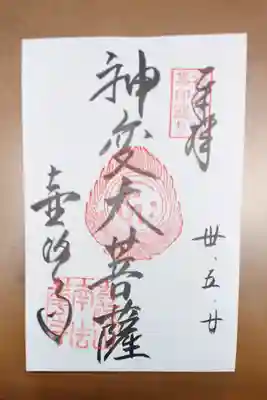 奉拝
卅・五・廿
神変大菩薩
壺阪寺